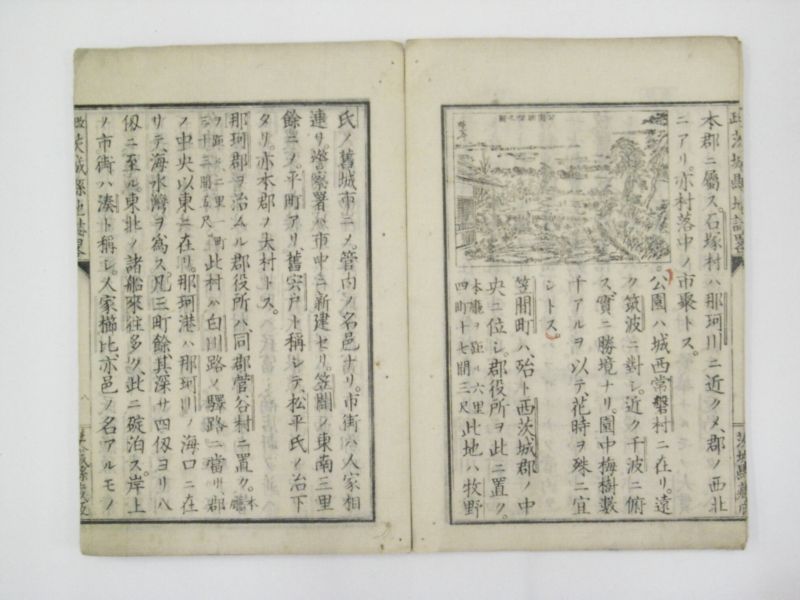 本郡ニ屬ス石塚村ハ那珂川ニ近クメ、郡ノ西北
ニアリ。亦村落中ノ市聚トス。
公園ハ城西常磐村ニ在リ。遠
ク筑波ニ對シ。近ク千波ニ俯
ス。實ニ勝境ナリ。園中梅樹数
千アルヲ以テ、花時ヲ殊ニ宜
シトス。
笠間町ハ、殆ト西茨城郡ノ中
央ニ位シ。郡役所ヲ此ニ置ク。
本廳ヲ距ル六里
四町十七間三尺
此地ハ牧野
氏ノ舊城市ニメ。管内ノ名邑ナリ。市街ハ人家相
連リ。警察署ハ市中ニ新建セリ。笠間ノ東南三里
餘ニメ。平町アリ、舊宍戸ト稱シテ、松平氏ノ治下
タリ。亦本郡ノ大村トス。
那珂郡ヲ治ムル郡役所ハ、同郡菅谷村ニ置ク。
本廳
ヲ距ル二里一町
三十二間五尺
此村ハ白川路ノ驛路ニ當リ郡
ノ中央以東ニ在リ。那珂港ハ那珂川ノ海口ニ在
リテ、海水灣ヲ為ス。凡三町餘、其深サ四仭ヨリ八
仭ニ至ル東北ノ諸船來往多ク、此ニ碇泊ス。岸上
ノ市街ハ湊ト稱シ。人家櫛比亦邑ノ名アルモノ